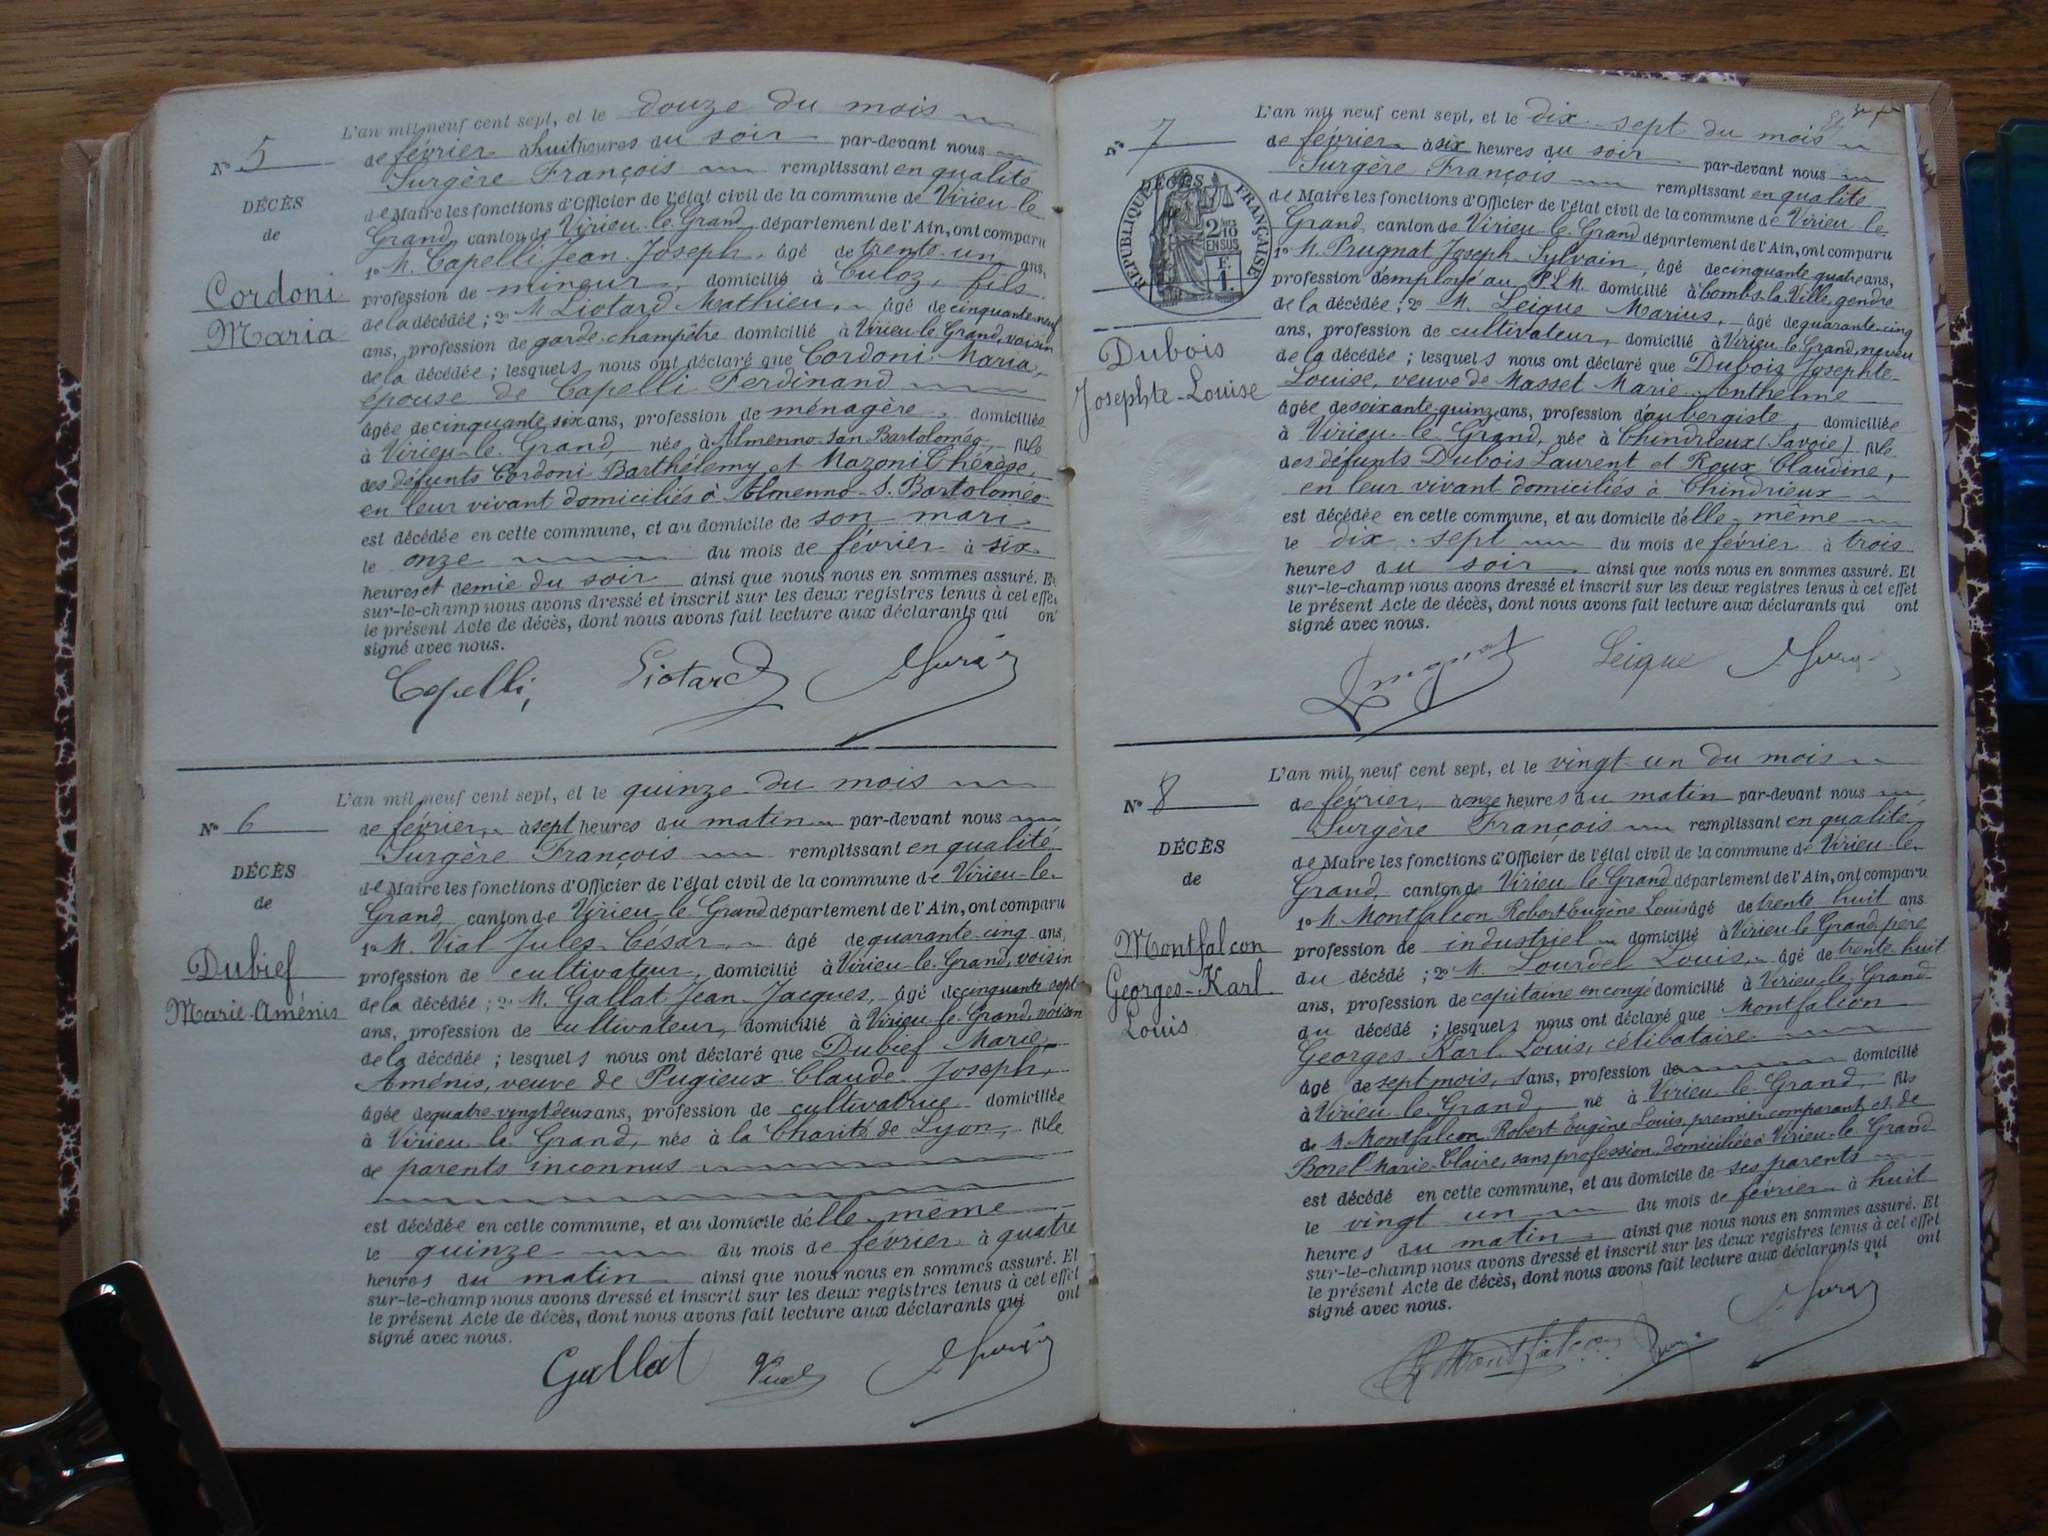 L'an mil neuf cent sept, et le douze du mois
N° 5
de février à huit heures du soir par-devant nous
Surgère François remplissant en qualité
DÉCÈS
de Maire les fonctions d'Officier de l'état civil de la commune de Virieu-le-
de
Grand canton de Virieu-le-Grand département de l'Ain, ont comparu
1° M. Capelli Jean-Joseph, âgé de trente-un ans,
Cordoni
profession de mineur, domicilié à Culoz, fils
de la décédée; 2° M. Liotard Mathieu, âgé de cinquante-neuf
Maria
ans, profession de garde-champêtre domicilié à Virieu-le-Grand, voisin
de la décédée; lesquels nous ont déclaré que Cordoni Maria,
épouse de Capelli Ferdinand
âgée de cinquante six ans, profession de ménagère domiciliée
à Virieu-le-Grand, née à Almenno-San Bartoloméo, fille
des défunts Cordoni Barthélemy et Mazoni Thérèse,
en leur vivant domiciliés à Almenno-S. Bartoloméo
est décédée en cette commune, et au domicile de son mari
le onze du mois de février à six
heures et demie du soir ainsi que nous nous en sommes assuré. Et
sur-le-champ nous avons dressé et inscrit sur les deux registres tenus à cet effet
le présent Acte de décès, dont nous avons fait lecture aux déclarants qui ont
signé avec nous.
Capelli, Liotard
L'an mil neuf cent sept, et le quinze du mois
N° 6
de février à sept heures du matin par-devant nous
Surgère François remplissant en qualité
DÉCÈS
de Maire les fonctions d'Officier de l'état civil de la commune de Virieu-le-
de
Grand canton de Virieu-le-Grand département de l'Ain, ont comparu
1° M. Vial Jules-César, âgé de quarante-cinq ans,
Dubief
profession de cultivateur, domicilié à Virieu-le-Grand, voisin
de la décédée; 2° M. Gallat Jean-Jacques, âgé de cinquante sept
Marie-Aménis
ans, profession de cultivateur, domicilié à Virieu-le-Grand, voisin
de la décédée; lesquels nous ont déclaré que Dubief Marie-
Aménis, veuve de Pugieux Claude-Joseph,
âgée de quatre-vingt deux ans, profession de cultivatrice domiciliée
à Virieu-le-Grand, née à la Charité de Lyon, fille
de parents inconnus
est décédée en cette commune, et au domicile d'elle-même
le quinze du mois de février à quatre
heures du matin ainsi que nous nous en sommes assuré. Et
sur-le-champ nous avons dressé et inscrit sur les deux registres tenus à cet effet
le présent Acte de décès, dont nous avons fait lecture aux déclarants qui ont
signé avec nous.
Gallat Vial
L'an mil neuf cent sept, et le dix-sept du mois
N° 7
de février à six heures du soir par-devant nous
Surgère François remplissant en qualité
DÉCÈS
RÉPUBLIQUE FRANÇAISE
2 10 EN SUS
F. 1.
de Maire les fonctions d'Officier de l'état civil de la commune de Virieu-le-
Grand canton de Virieu-le-Grand département de l'Ain, ont comparu
1° M. Prugnat Joseph-Sylvain, âgé de cinquante quatre ans,
profession d'employé au P.L.M. domicilié à Combs-la-Ville, gendre
de la décédée; 2° M. Leigue Marius, âgé de quarante-cinq
ans, profession de cultivateur, domicilié à Virieu-le-Grand, neveu
Dubois
de la décédée; lesquels nous ont déclaré que Dubois Josephte-
Josephte-Louise
Louise, veuve de Masset Marie-Anthelme
âgée de soixante-quinze ans, profession d'aubergiste domiciliée
à Virieu-le-Grand, née à Chindrieux (Savoie) fille
des défunts Dubois Laurent et Roux Claudine,
en leur vivant domiciliés à Chindrieux
est décédée en cette commune, et au domicile d'elle-même
le dix-sept du mois de février à trois
heures du soir ainsi que nous nous en sommes assuré. Et
sur-le-champ nous avons dressé et inscrit sur les deux registres tenus à cet effet
le présent Acte de décès, dont nous avons fait lecture aux déclarants qui ont
signé avec nous.
Prugnat Leigue
L'an mil neuf cent sept, et le vingt-un du mois
N° 8
de février, à onze heures du matin par-devant nous
Surgère François remplissant en qualité
DÉCÈS
de Maire les fonctions d'Officier de l'état civil de la commune de Virieu-le-
de
Grand canton de Virieu-le-Grand département de l'Ain, ont comparu
1° M. Montfalcon Robert Eugène Louis âgé de trente huit ans
Montfalcon
profession de industriel domicilié à Virieu-le-Grand, père
Georges-Karl
du décédé; 2° M. Lourdel Louis, âgé de trente huit
ans, profession de capitaine en congé domicilié à Virieu-le-Grand
Louis
du décédé; lesquels nous ont déclaré que Montfalcon
Georges Karl Louis, célibataire
âgé de sept mois, sans, profession de domicilié
à Virieu-le-Grand, né à Virieu-le-Grand, fils
de M. Montfalcon Robert Eugène Louis, premier comparant, et de
Borel Marie-Claire, sans profession, domiciliée à Virieu-le-Grand
est décédé en cette commune, et au domicile de ses parents
le vingt-un du mois de février à huit
heures du matin ainsi que nous nous en sommes assuré. Et
sur-le-champ nous avons dressé et inscrit sur les deux registres tenus à cet effet
le présent Acte de décès, dont nous avons fait lecture aux déclarants qui ont
signé avec nous.
Montfalcon